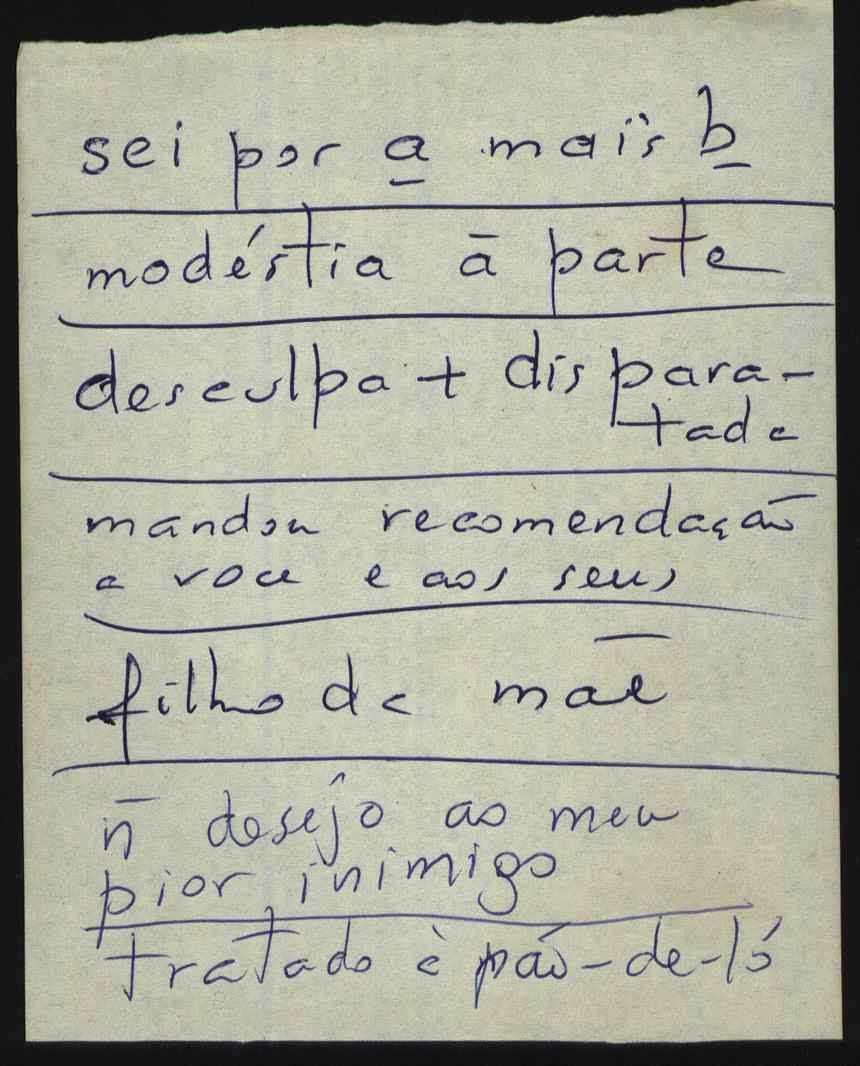 sei por a mais b
modéstia à parte
desculpa + dispara-
tada
mandou recomendação
a você e aos seus
filho da mãe
ñ desejo ao meu
pior inimigo
tratado a pão-de-ló